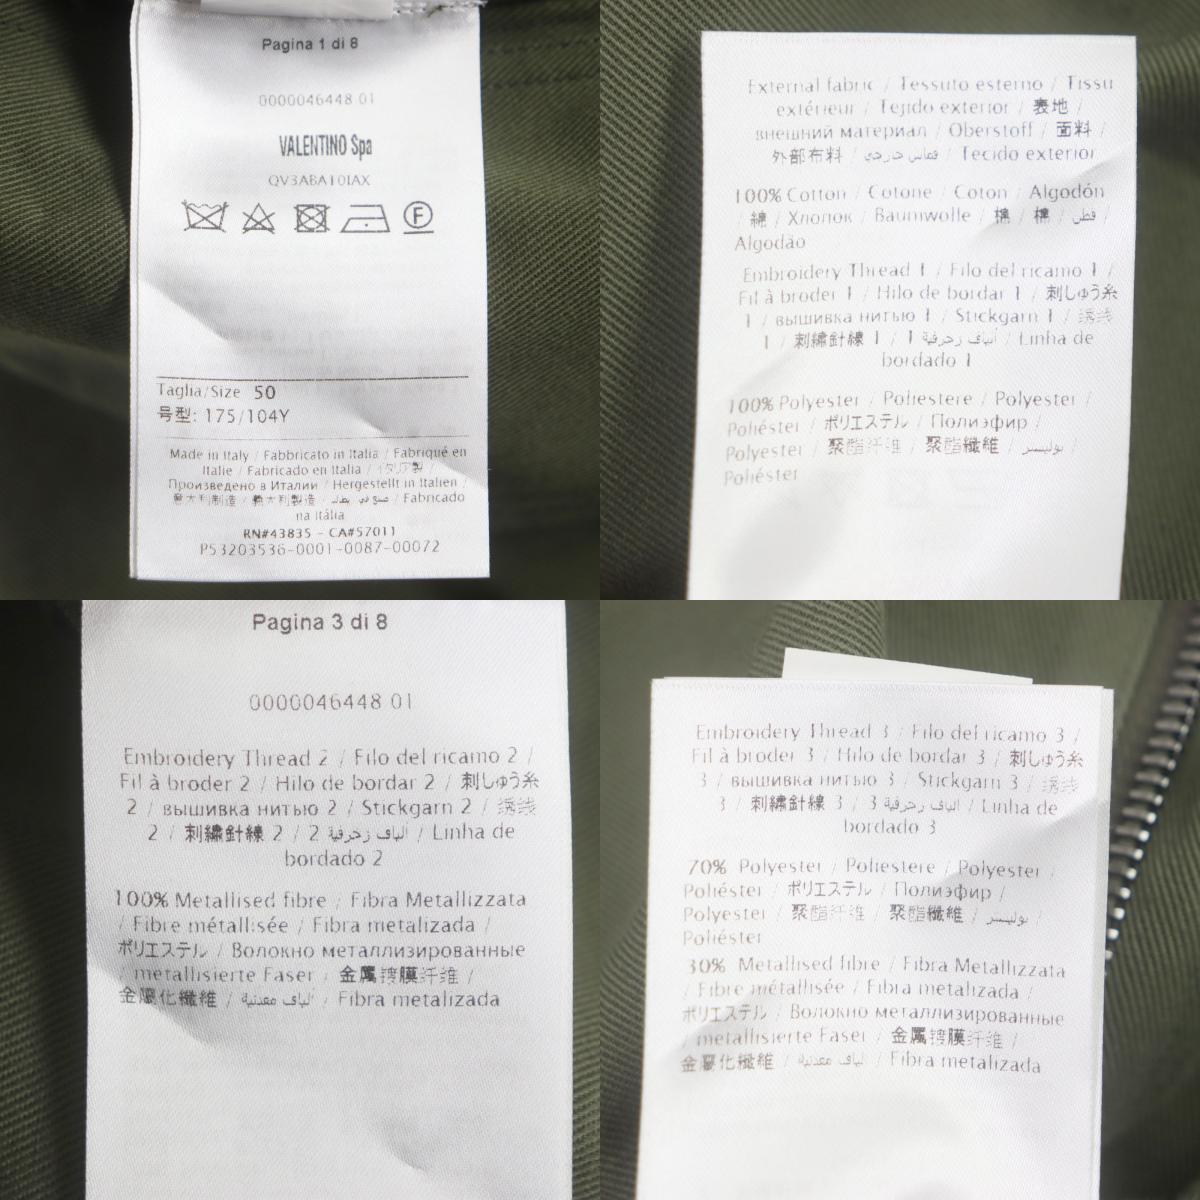 Pagina 1 di 8
0000046448 01
VALENTINO Spa
QV3ABA10IAX
F
Taglia/Size 50
号型: 175/104Y
Made in Italy / Fabbricato in Italia / Fabriqué en
Italie / Fabricado en Italia / イタリア製 /
Произведено в Италии / Hergestellt in Italien /
意大利制造 / 義大利製造 / صنع في إيطاليا / Fabricado
na Itália
RN#43835 - CA#57011
P53203536-0001-0087-00072
External fabric / Tessuto esterno / Tissu
extérieur / Tejido exterior / 表地 /
внешний материал / Oberstoff / 面料 /
外部布料 / قماس خارجي / Tecido exterior
100% Cotton / Cotone / Coton / Algodón
/ 綿 / Хлопок / Baumwolle / 棉 / 棉 / قطن /
Algodão
Embroidery Thread 1 / Filo del ricamo 1 /
Fil à broder 1 / Hilo de bordar 1 / 刺しゅう糸
1 / вышивка нитью 1 / Stickgarn 1 / 绣线
1 / 刺繡針線 1 / 1 ألياف زخرفية / Linha de
bordado 1
100% Polyester / Poliestere / Polyester /
Poliéster / ポリエステル / Полиэфир /
Polyester / 聚酯纤维 / 聚酯纖維 / بوليستر /
Poliéster
Pagina 3 di 8
0000046448 01
Embroidery Thread 2 / Filo del ricamo 2 /
Fil à broder 2 / Hilo de bordar 2 / 刺しゅう糸
2 / вышивка нитью 2 / Stickgarn 2 / 绣线
2 / 刺繡針線 2 / 2 ألياف زخرفية / Linha de
bordado 2
100% Metallised fibre / Fibra Metallizzata
/ Fibre métallisée / Fibra metalizada /
ポリエステル / Волокно металлизированные
/ metallisierte Faser / 金属镀膜纤维 /
金屬化纖維 / ألياف معدنية / Fibra metalizada
Embroidery Thread 3 / Filo del ricamo 3 /
Fil à broder 3 / Hilo de bordar 3 / 刺しゅう糸
3 / вышивка нитью 3 / Stickgarn 3 / 绣线
3 / 刺繡針線 3 / 3 ألياف زخرفية / Linha de
bordado 3
70% Polyester / Poliestere / Polyester /
Poliéster / ポリエステル / Полиэфир /
Polyester / 聚酯纤维 / 聚酯纖維 / بوليستر /
Poliéster
30% Metallised fibre / Fibra Metallizzata
/ Fibre métallisée / Fibra metalizada /
ポリエステル / Волокно металлизированные
/ metallisierte Faser / 金属镀膜纤维 /
金屬化纖維 / ألياف معدنية / Fibra metalizada